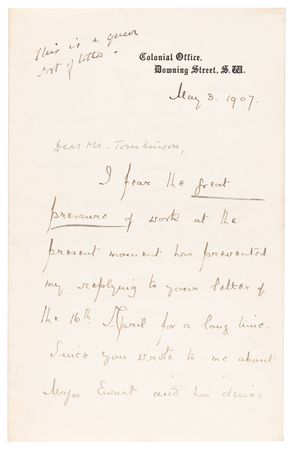 This is a queer
sort of letter.
Colonial Office,
Downing Street, S.W.
May 3. 1907.
Dear Mr. Tomkinson,
I fear the great
pressure of work at the
present moment has prevented
my replying to your letter of
the 16th April for a long time.
Since you wrote to me about
Major Ewart and his desire